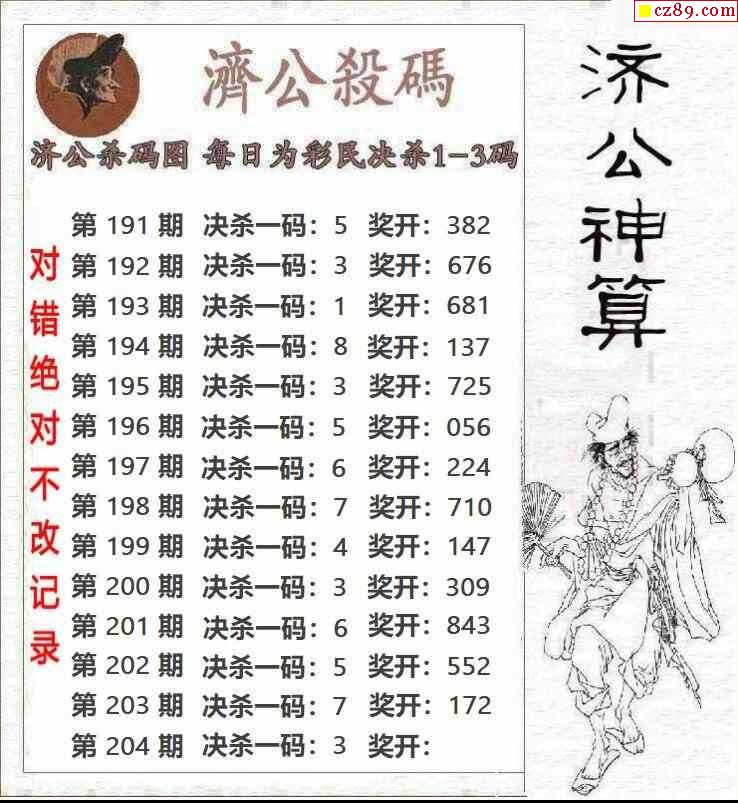 cz89.com
濟公殺碼
济公杀码图 每日为彩民决杀1-3码
第 191 期 决杀一码：5 奖开：382
第 192 期 决杀一码：3 奖开：676
第 193 期 决杀一码：1 奖开：681
第 194 期 决杀一码：8 奖开：137
第 195 期 决杀一码：3 奖开：725
第 196 期 决杀一码：5 奖开：056
第 197 期 决杀一码：6 奖开：224
第 198 期 决杀一码：7 奖开：710
第 199 期 决杀一码：4 奖开：147
第 200 期 决杀一码：3 奖开：309
第 201 期 决杀一码：6 奖开：843
第 202 期 决杀一码：5 奖开：552
第 203 期 决杀一码：7 奖开：172
第 204 期 决杀一码：3 奖开：
对错绝对不改记录
济公神算